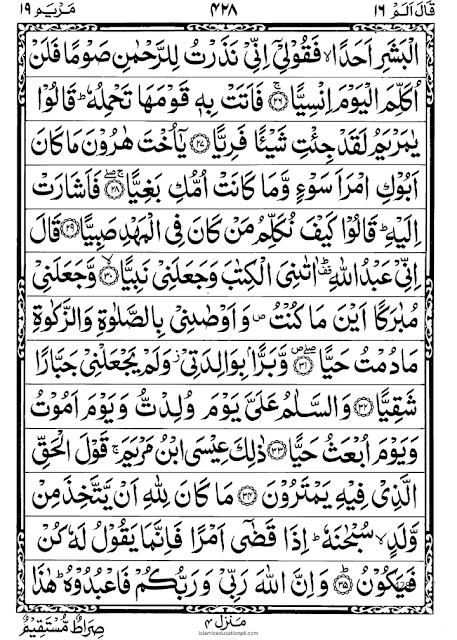 قَالَ اَلَمْ ١٦ ٤٢٨ مَرْيَم ١٩
الْبَشَرِ اَحَدًا ۙ فَقُوْلِيْۤ اِنِّيْ نَذَرْتُ لِلرَّحْمٰنِ صَوْمًا فَلَنْ
اُكَلِّمَ الْيَوْمَ اِنْسِيًّا ۚ﴿۲۶﴾ فَاَتَتْ بِهٖ قَوْمَهَا تَحْمِلُهٗ ؕ قَالُوْا
يٰمَرْيَمُ لَقَدْ جِئْتِ شَيْـًٔا فَرِيًّا ﴿۲۷﴾ يٰۤاُخْتَ هٰرُوْنَ مَا كَانَ
اَبُوْكِ امْرَاَ سَوْءٍ وَّمَا كَانَتْ اُمُّكِ بَغِيًّا ۖۚ﴿۲۸﴾ فَاَشَارَتْ
اِلَيْهِ ؕ قَالُوْا كَيْفَ نُكَلِّمُ مَنْ كَانَ فِي الْمَهْدِ صَبِيًّا ﴿۲۹﴾ قَالَ
اِنِّيْ عَبْدُ اللّٰهِ ؕ۟ اٰتٰىنِيَ الْكِتٰبَ وَجَعَلَنِيْ نَبِيًّا ۙ﴿۳۰﴾ وَّجَعَلَنِيْ
مُبٰرَكًا اَيْنَ مَا كُنْتُ ۪ وَاَوْصٰنِيْ بِالصَّلٰوةِ وَالزَّكٰوةِ
مَا دُمْتُ حَيًّا ۪ۖ﴿۳۱﴾ وَّبَرًّۢا بِوَالِدَتِيْ ؗ وَلَمْ يَجْعَلْنِيْ جَبَّارًا
شَقِيًّا ﴿۳۲﴾ وَالسَّلٰمُ عَلَيَّ يَوْمَ وُلِدْتُّ وَيَوْمَ اَمُوْتُ
وَيَوْمَ اُبْعَثُ حَيًّا ﴿۳۳﴾ ذٰلِكَ عِيْسَى ابْنُ مَرْيَمَ ۚ قَوْلَ الْحَقِّ
الَّذِيْ فِيْهِ يَمْتَرُوْنَ ﴿۳۴﴾ مَا كَانَ لِلّٰهِ اَنْ يَّتَّخِذَ مِنْ
وَّلَدٍ ۙ سُبْحٰنَهٗ ؕ اِذَا قَضٰۤى اَمْرًا فَاِنَّمَا يَقُوْلُ لَهٗ كُنْ
فَيَكُوْنُ ؕ﴿۳۵﴾ وَاِنَّ اللّٰهَ رَبِّيْ وَرَبُّكُمْ فَاعْبُدُوْهُ ؕ هٰذَا
صِرَاطٌ مُّسْتَقِيْمٌ
مَنْزِل ٤
islamiceducationpk.com